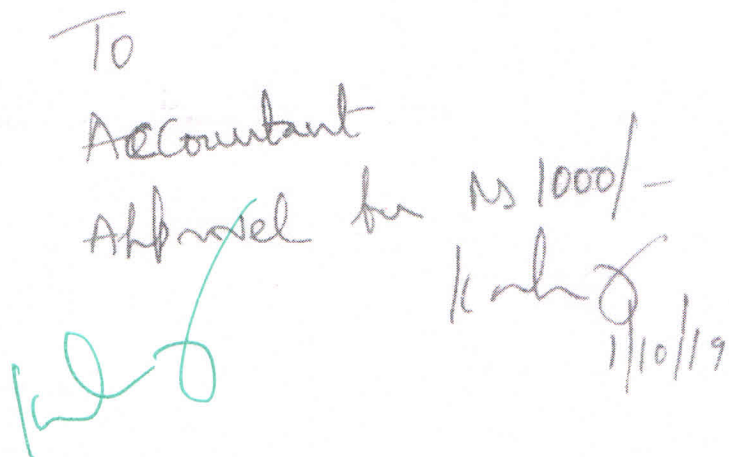 To
Accountant
Approvel for Rs 1000/-
1/10/19